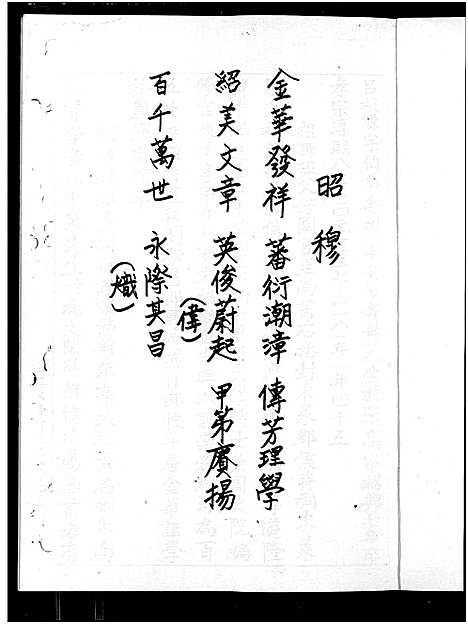 昭穆
金華發祥 蕃衍潮漳 傳芳理學
紹美文章 英俊蔚起 甲第賡揚
(偉)
百千萬世 永際其昌
(熾)